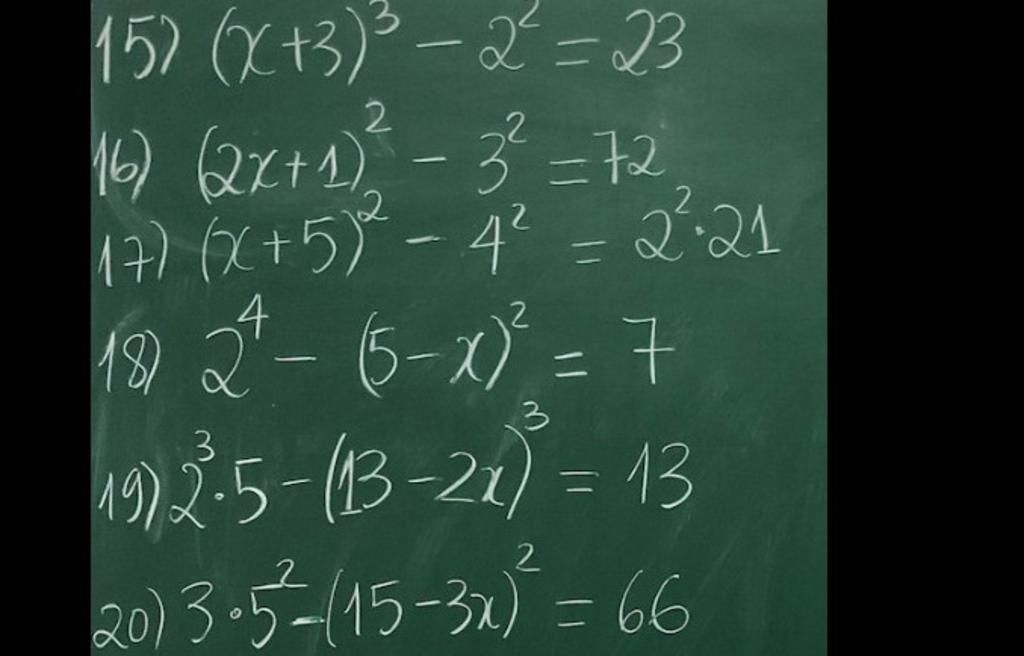 15) (x+3)³ - 2² = 23
16) (2x+1)² - 3² = 72
17) (x+5)² - 4² = 2²·21
18) 2⁴ - (5-x)² = 7
19) 2³·5 - (13-2x)³ = 13
20) 3·5² - (15-3x)² = 66